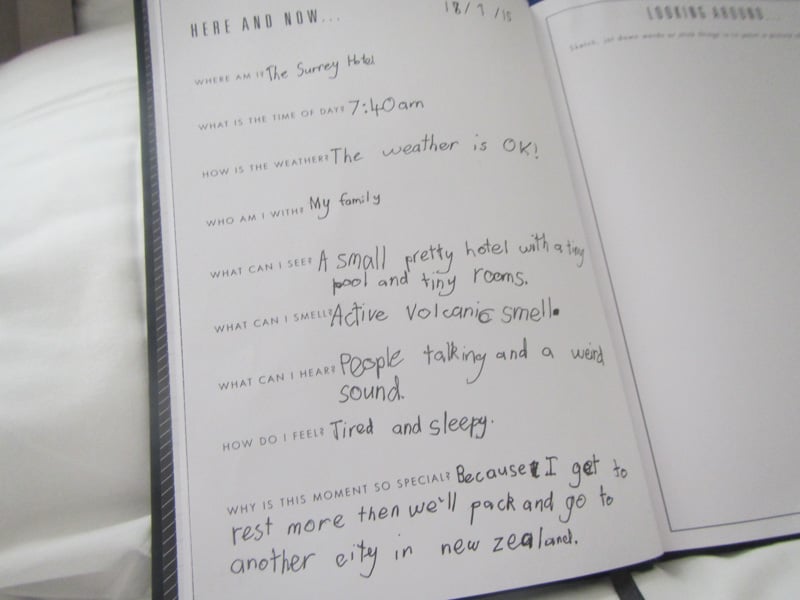 HERE AND NOW...
18/7/15
WHERE AM I? The Surrey Hotel
WHAT IS THE TIME OF DAY? 7:40am
HOW IS THE WEATHER? The weather is OK!
WHO AM I WITH? My family
WHAT CAN I SEE? A small pretty hotel with a tiny
pool and tiny rooms.
WHAT CAN I SMELL? Active Volcanic smell.
WHAT CAN I HEAR? People talking and a weird
sound.
HOW DO I FEEL? Tired and sleepy.
WHY IS THIS MOMENT SO SPECIAL? Because I get to
rest more then we'll pack and go to
another city in new zealand.
LOOKING AROUND...